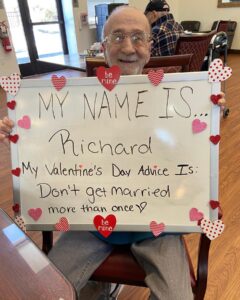 be mine
MY NAME IS...
be mine
Richard
My Valentine's Day Advice Is:
be mine
Don't get married
more than once
be mine